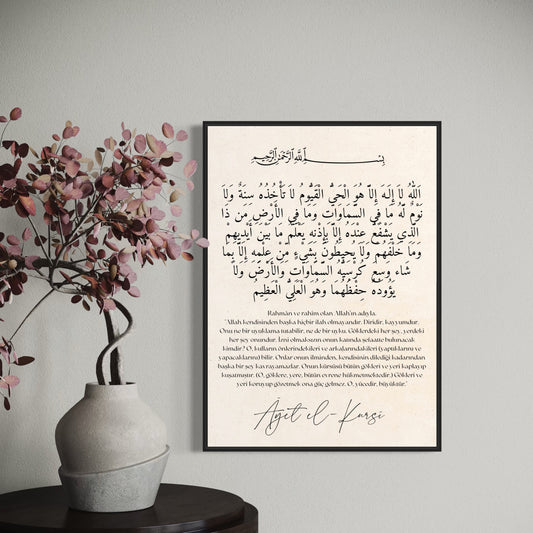 بِسْمِ اللَّهِ الرَّحْمَنِ الرَّحِيمِ
اَللّٰهُ لاَ إِلَـهَ إِلاَّ هُوَ الْحَيُّ الْقَيُّومُ لاَ تَأْخُذُهُ سِنَةٌ وَلاَ
نَوْمٌ لَّهُ مَا فِي السَّمَاوَاتِ وَمَا فِي الأَرْضِ مَن ذَا
الَّذِي يَشْفَعُ عِنْدَهُ إِلاَّ بِإِذْنِهِ يَعْلَمُ مَا بَيْنَ أَيْدِيهِمْ
وَمَا خَلْفَهُمْ وَلاَ يُحِيطُونَ بِشَيْءٍ مِّنْ عِلْمِهِ إِلاَّ بِمَا
شَاء وَسِعَ كُرْسِيُّهُ السَّمَاوَاتِ وَالأَرْضَ وَلاَ
يَؤُودُهُ حِفْظُهُمَا وَهُوَ الْعَلِيُّ الْعَظِيمُ
Rahmân ve rahîm olan Allah'ın adıyla.
"Allah kendisinden başka hiçbir ilah olmayandır. Diridir, kayyumdur.
Onu ne bir uyuklama tutabilir, ne de bir uyku. Göklerdeki her şey, yerdeki
her şey onundur. İzni olmaksızın onun katında şefaatte bulunacak
kimdir? O, kulların önlerindekileri ve arkalarındakileri (yaptıklarını ve
yapacaklarını) bilir. Onlar onun ilminden, kendisinin dilediği kadarından
başka bir şey kavrayamazlar. Onun kürsüsü bütün gökleri ve yeri kaplayıp
kuşatmıştır. (O, göklere, yere, bütün evrene hükmetmektedir.) Gökleri ve
yeri koruyup gözetmek ona güç gelmez. O, yücedir, büyüktür."
Âyet el-Kursî